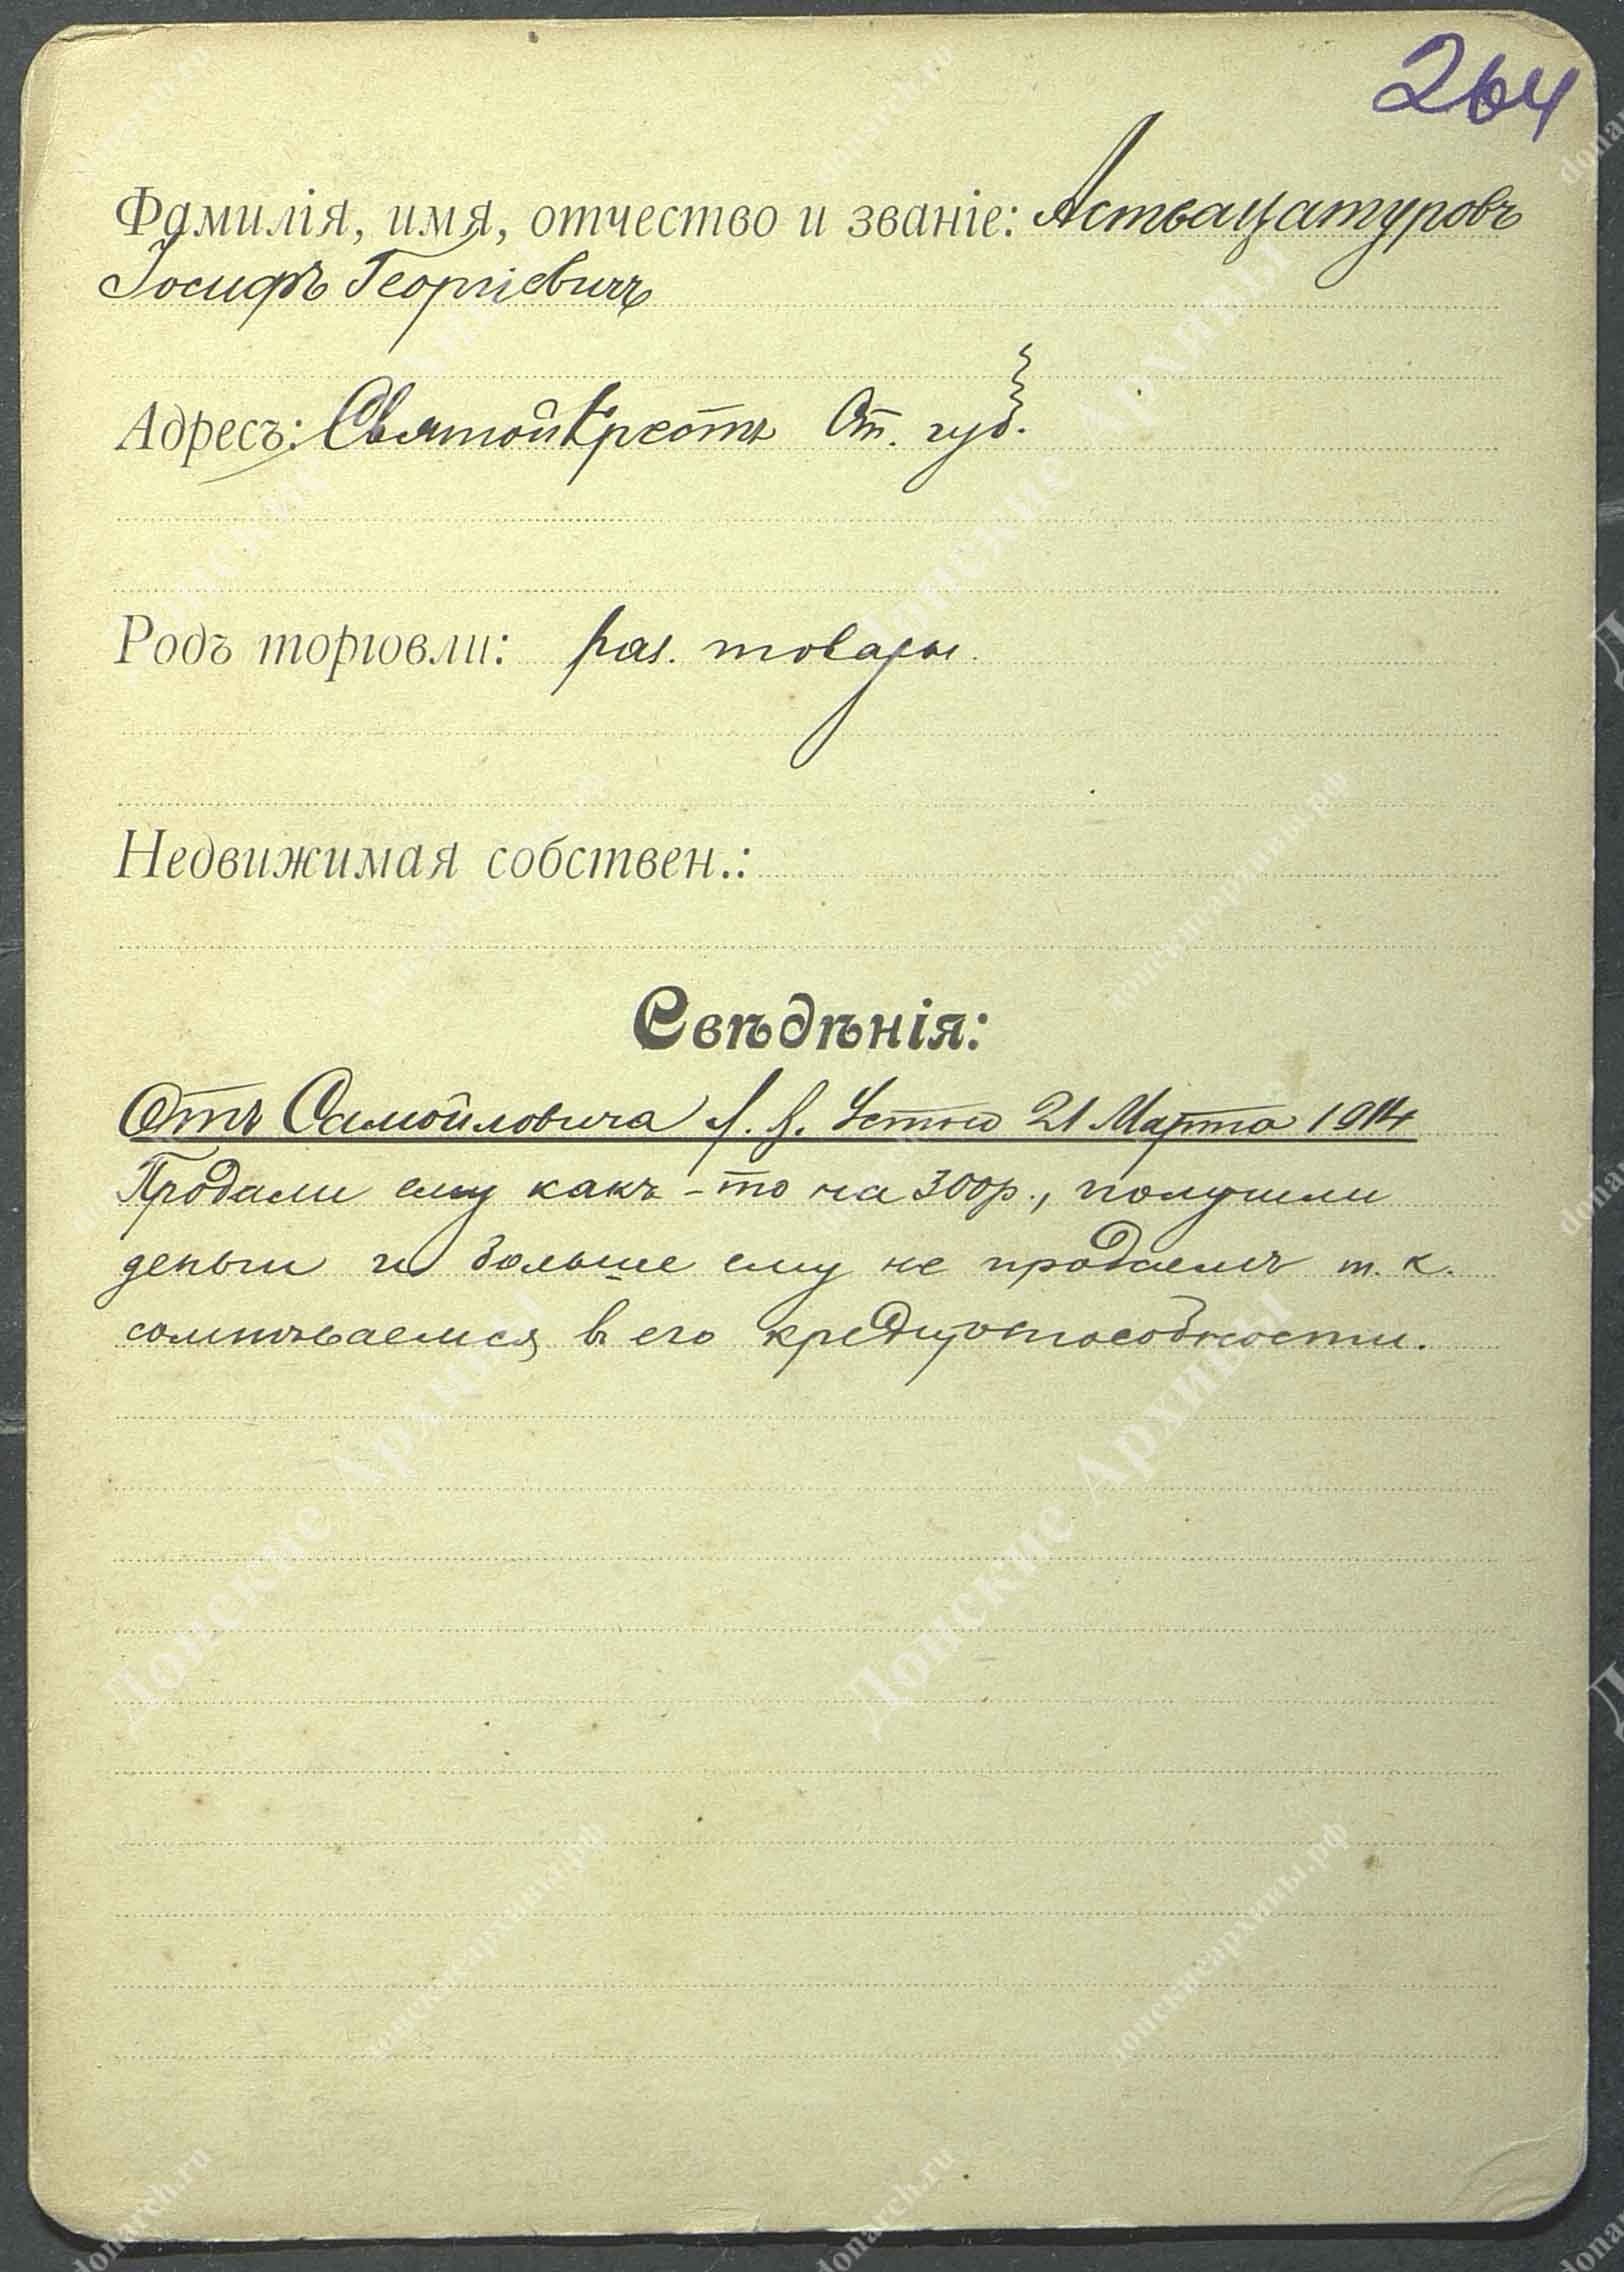 264
Фамилія, имя, отчество и званіе: Аствацатуровъ
Іосифъ Георгіевичъ
Адресъ: Святой Крестъ Ст. губ.
Родъ торговли: раз. товары.
Недвижимая собствен.:
Свѣдѣнія:
Отъ Самойловича 21 Марта 1914
Продали ему какъ-то на 300р., получили
деньги и больше ему не продаемъ т. к.
сомнѣваемся въ его кредитоспособности.